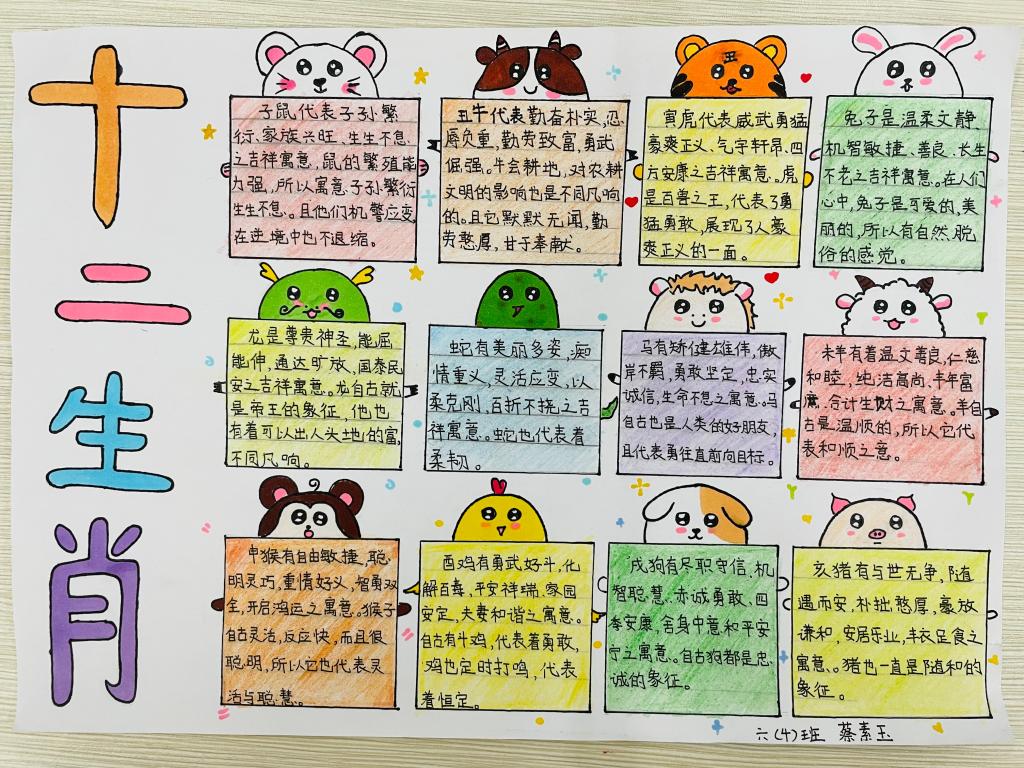 十二生肖
子鼠代表子子孙繁
衍、家族兴旺、生生不息
之吉祥寓意,鼠的繁殖能
力强,所以寓意子子孙繁衍
生生不息、。且他们机警应变,
在逆境中也不退缩。
丑牛代表勤奋朴实,忍
辱负重,勤劳致富,勇武
倔强。牛会耕地,对农耕
文明的影响也是不同凡响
的。且它默默无闻,勤
劳憨厚,甘于奉献。
寅虎代表威武勇猛
豪爽正义、气宇轩昂、四
方安康之吉祥寓意。虎
是百兽之王,代表了勇
猛勇敢,展现了人豪
爽正义的一面。
兔子是温柔文静、
机智敏捷、善良、长生
不老之吉祥寓意。在人们
心中,兔子是可爱的,美
丽的,所以有自然、脱
俗的感觉。
龙是尊贵神圣,能屈
能伸,通达旷放、国泰民
安之吉祥寓意。龙自古就
是帝王的象征,他也
有着可以出人头地的富,
不同凡响。
蛇有美丽多姿,痴
情重义,灵活应变,以
柔克刚,百折不挠之吉
祥寓意。蛇也代表着
柔韧。
马有矫健雄伟,傲
岸不羁,勇敢坚定,忠实
诚信,生命不息之寓意。马
自古也是人类的好朋友,
且代表勇往直前向目标。
未羊有着温文善良,仁慈
和睦,纯洁高尚、丰年富
庶、合计生财之寓意。羊自
古是温顺的,所以它代
表和顺之意。
申猴有自由敏捷,聪
明灵巧,重情好义,智勇双
全,开启鸿运之寓意。猴子
自古灵活,反应快,而且很
聪明,所以它也代表灵
活与聪慧。
酉鸡有勇武好斗,化
解百毒,平安祥瑞、家园
安定,夫妻和谐之寓意。
自古有斗鸡,代表着勇敢,
鸡也定时打鸣,代表
着恒定。
戌狗有尽职守信、机
智聪慧、赤诚勇敢、四
季安康,舍身中意和平安
宁之寓意。自古狗都是忠
诚的象征。
亥猪有与世无争,随
遇而安,朴拙憨厚,豪放
谦和,安居乐业,丰衣足食之
寓意。猪也一直是随和的
象征。
六(4)班 蔡素玉